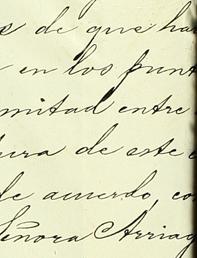 s de que ha
en los punt
mitad entre
ura de este
de acuerdo, co
Señora Arriag